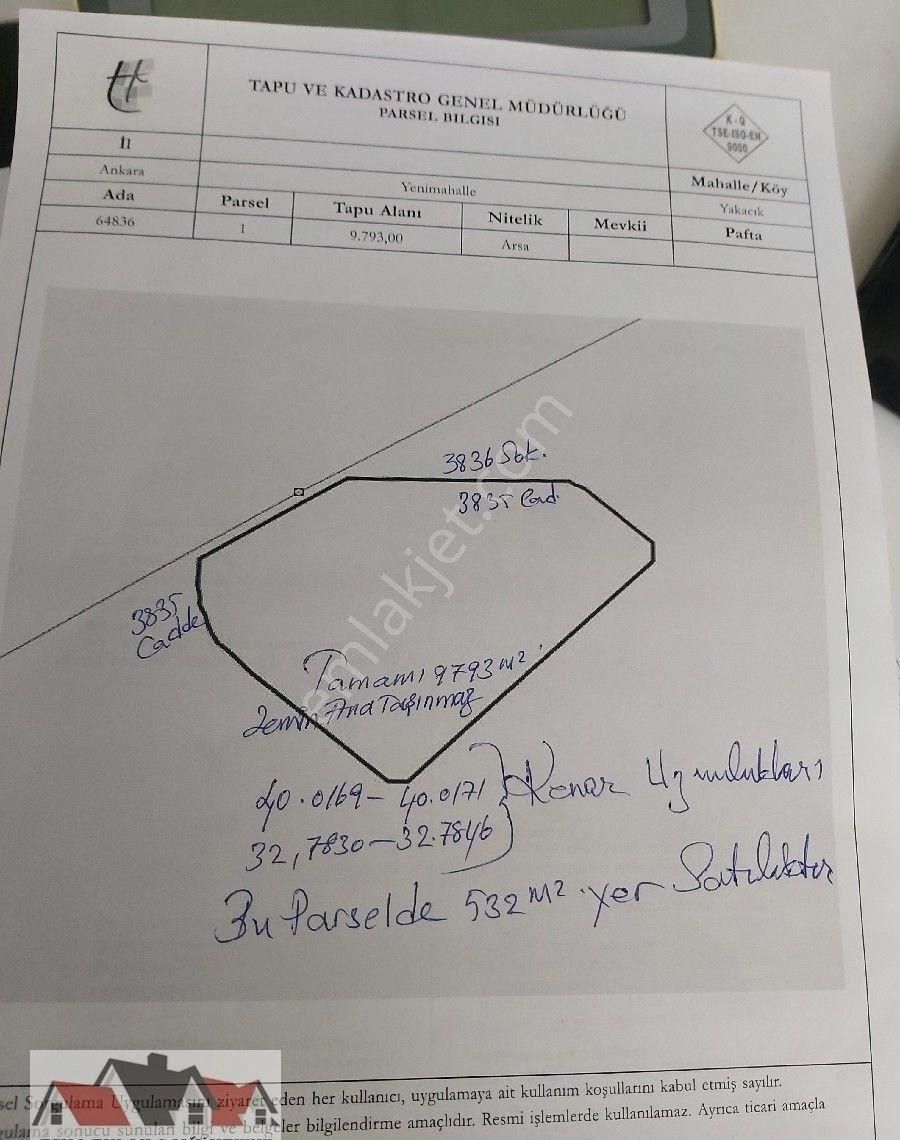 TAPU VE KADASTRO GENEL MÜDÜRLÜĞÜ
PARSEL BILGISI
K-Q
TSE-ISO-EN
9000
İl
Mahalle/Köy
Ankara
Yenimahalle
Yakacık
Ada
Parsel
Tapu Alanı
Nitelik
Mevkii
Pafta
64836
1
9.793,00
Arsa
3836 Sok.
3835 Cad.
3835
Cadde
emlakjet.com
Tamamı 9793 m²
Zemin Ana Taşınmaz
40.0169 - 40.0171
Kenar Uzunlukları
32,7830 - 32.7846
Bu Parselde 532 m² yer Satılıktır
sel Sorgulama Uygulamasını ziyaret eden her kullanıcı, uygulamaya ait kullanım koşullarını kabul etmiş sayılır.
ulama sonucu sunulan bilgi ve belgeler bilgilendirme amaçlıdır. Resmi işlemlerde kullanılamaz. Ayrıca ticari amaçla